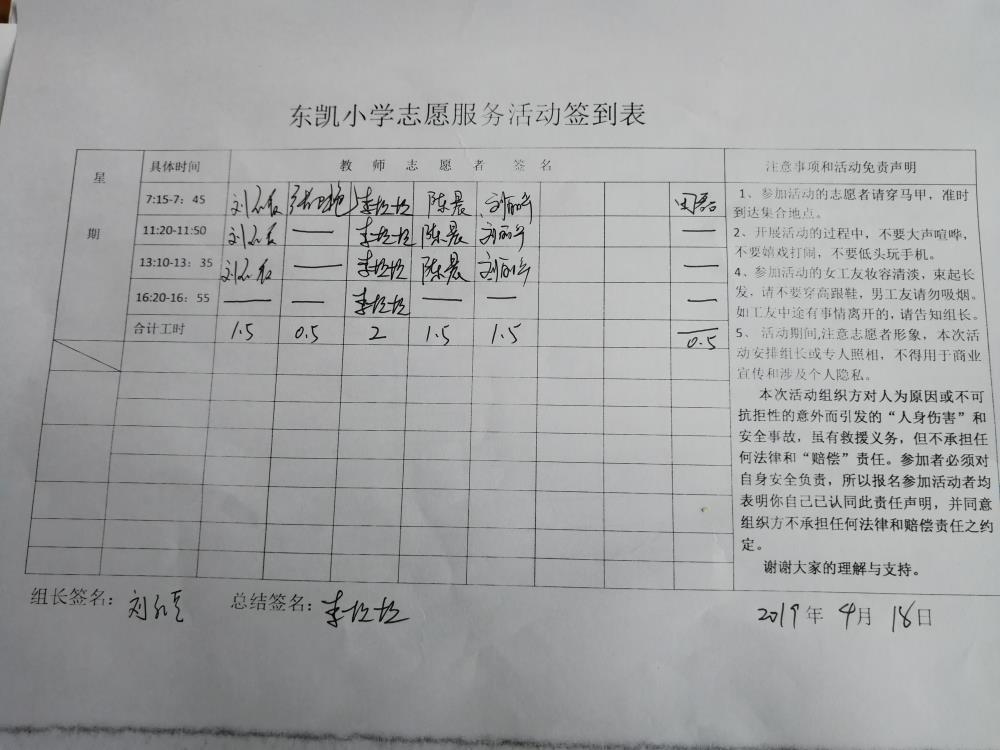 东凯小学志愿服务活动签到表
星期
具体时间 教师志愿者 签名 注意事项和活动免责声明
7:15-7：45 李垃垃 陈晨 刘丽华
11:20-11:50 — 李垃垃 陈晨 刘丽华 —
13:10-13：35 — 李垃垃 陈晨 刘丽华 —
16:20-16：55 — — 李垃垃 — — —
合计工时 1.5 0.5 2 1.5 1.5 0.5
1、参加活动的志愿者请穿马甲，准时
到达集合地点。
2、开展活动的过程中，不要大声喧哗，
不要嬉戏打闹，不要低头玩手机。
4、参加活动的女工友妆容清淡，束起长
发，请不要穿高跟鞋，男工友请勿吸烟。
如工友中途有事情离开的，请告知组长。
5、 活动期间,注意志愿者形象，本次活
动安排组长或专人照相，不得用于商业
宣传和涉及个人隐私。
本次活动组织方对人为原因或不可
抗拒性的意外而引发的“人身伤害”和
安全事故，虽有救援义务，但不承担任
何法律和“赔偿”责任。参加者必须对
自身安全负责，所以报名参加活动者均
表明你自己已认同此责任声明，并同意
组织方不承担任何法律和赔偿责任之约
定。
谢谢大家的理解与支持。
组长签名： 总结签名：李垃垃 2019年 4月 18日